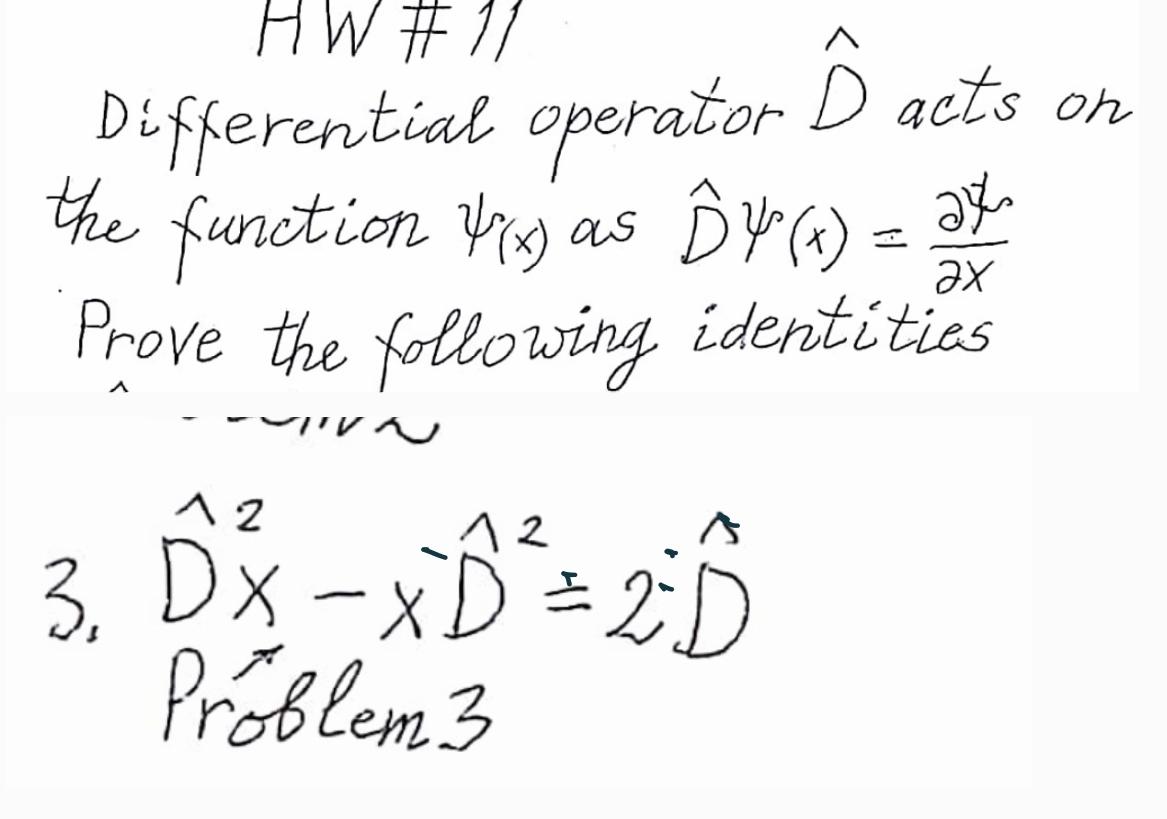 HW # 11
Differential operator D̂ acts on
the function ψ(x) as D̂ψ(x) = ∂ψ/∂x
Prove the following identities
3. D̂²x - xD̂² = 2D̂
Problem 3